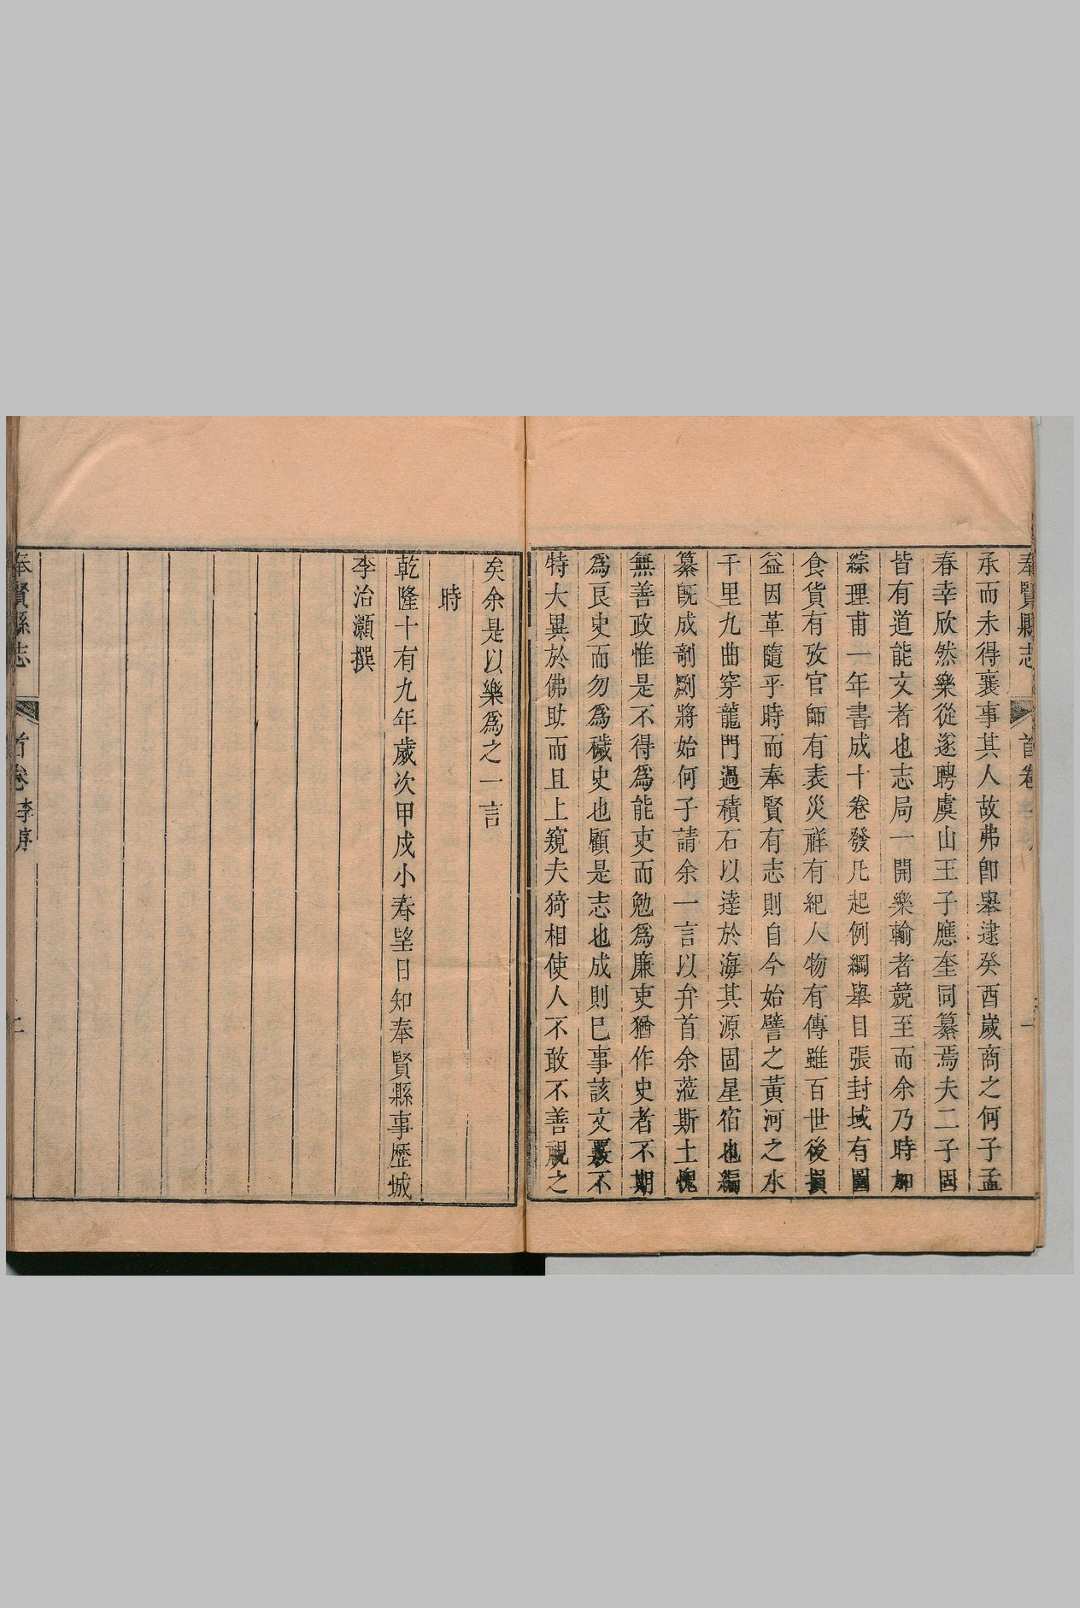 奉賢縣志
首卷
承而未得襄事其人故弗卽舉逮癸酉歲商之何子孟
春幸欣然樂從遂聘虞山王子應奎同纂焉夫二子固
皆有道能文者也志局一開樂輸者競至而余乃時加
綜理甫一年書成十卷發凡起例綱舉目張封域有圖
食貨有攷官師有表災祥有紀人物有傳雖百世後損
益因革隨乎時而奉賢有志則自今始譬之黃河之水
千里九曲穿龍門過積石以達於海其源固星宿也編
纂既成剞劂將始何子請余一言以弁首余蒞斯土愧
無善政惟是不得爲能吏而勉爲廉吏猶作史者不期
爲良史而勿爲穢史也顧是志也成則已事該文覈不
特大異於佛助而且上窺夫猗相使人不敢不善視之
矣余是以樂爲之一言
時
乾隆十有九年歲次甲戌小春望日知奉賢縣事歷城
李治灝撰
奉賢縣志
首卷李序
二